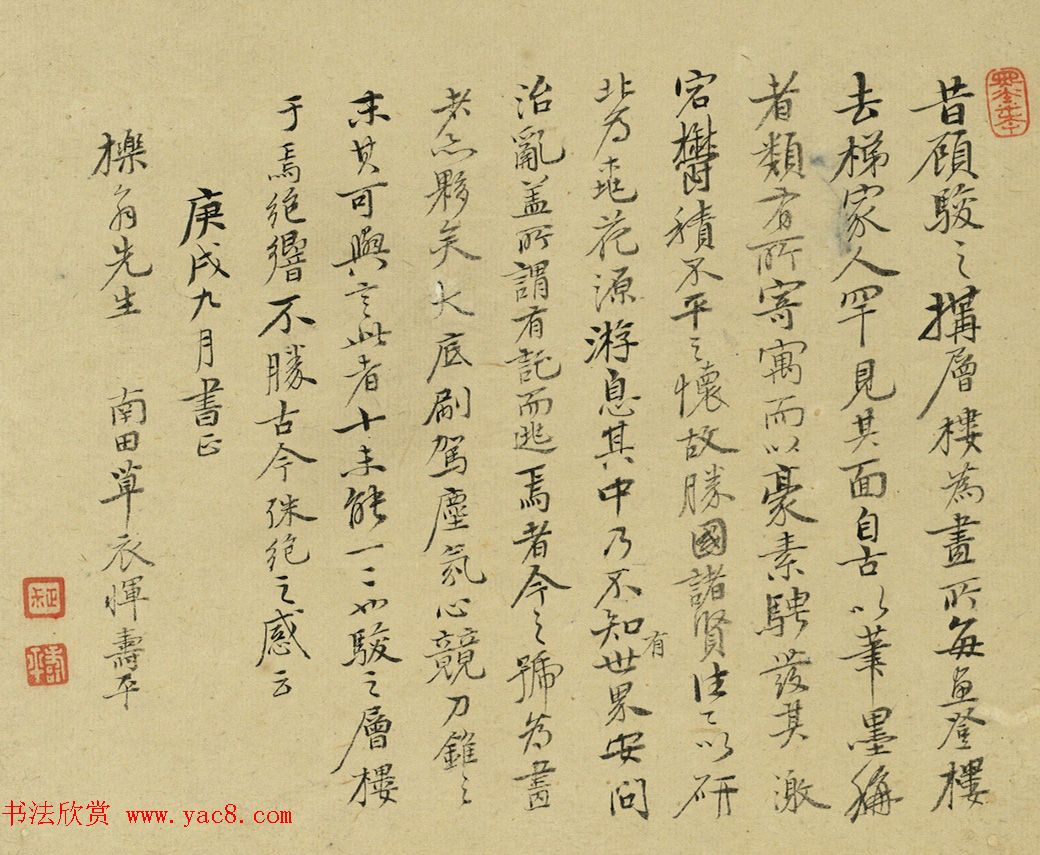 昔顾駿之搆層樓為畫所每畫登樓
去梯家人罕見其面自古以筆墨稱
者類有所寄寓而以豪素騁發其激
宕欝積不平之懷故勝國諸賢往々以研
北為桃花源游息其中乃不知有世界安問
治亂蓋所謂有託而逃焉者今之號為畫
者亦夥矣大底刷駕塵氛心競刀錐之
末其可與言此者十未能一二也駿之層樓
于焉絕響不勝古今殊絕之感云
庚戌九月書正
櫟翁先生 南田草衣惲壽平
书法欣赏 www.yac8.com